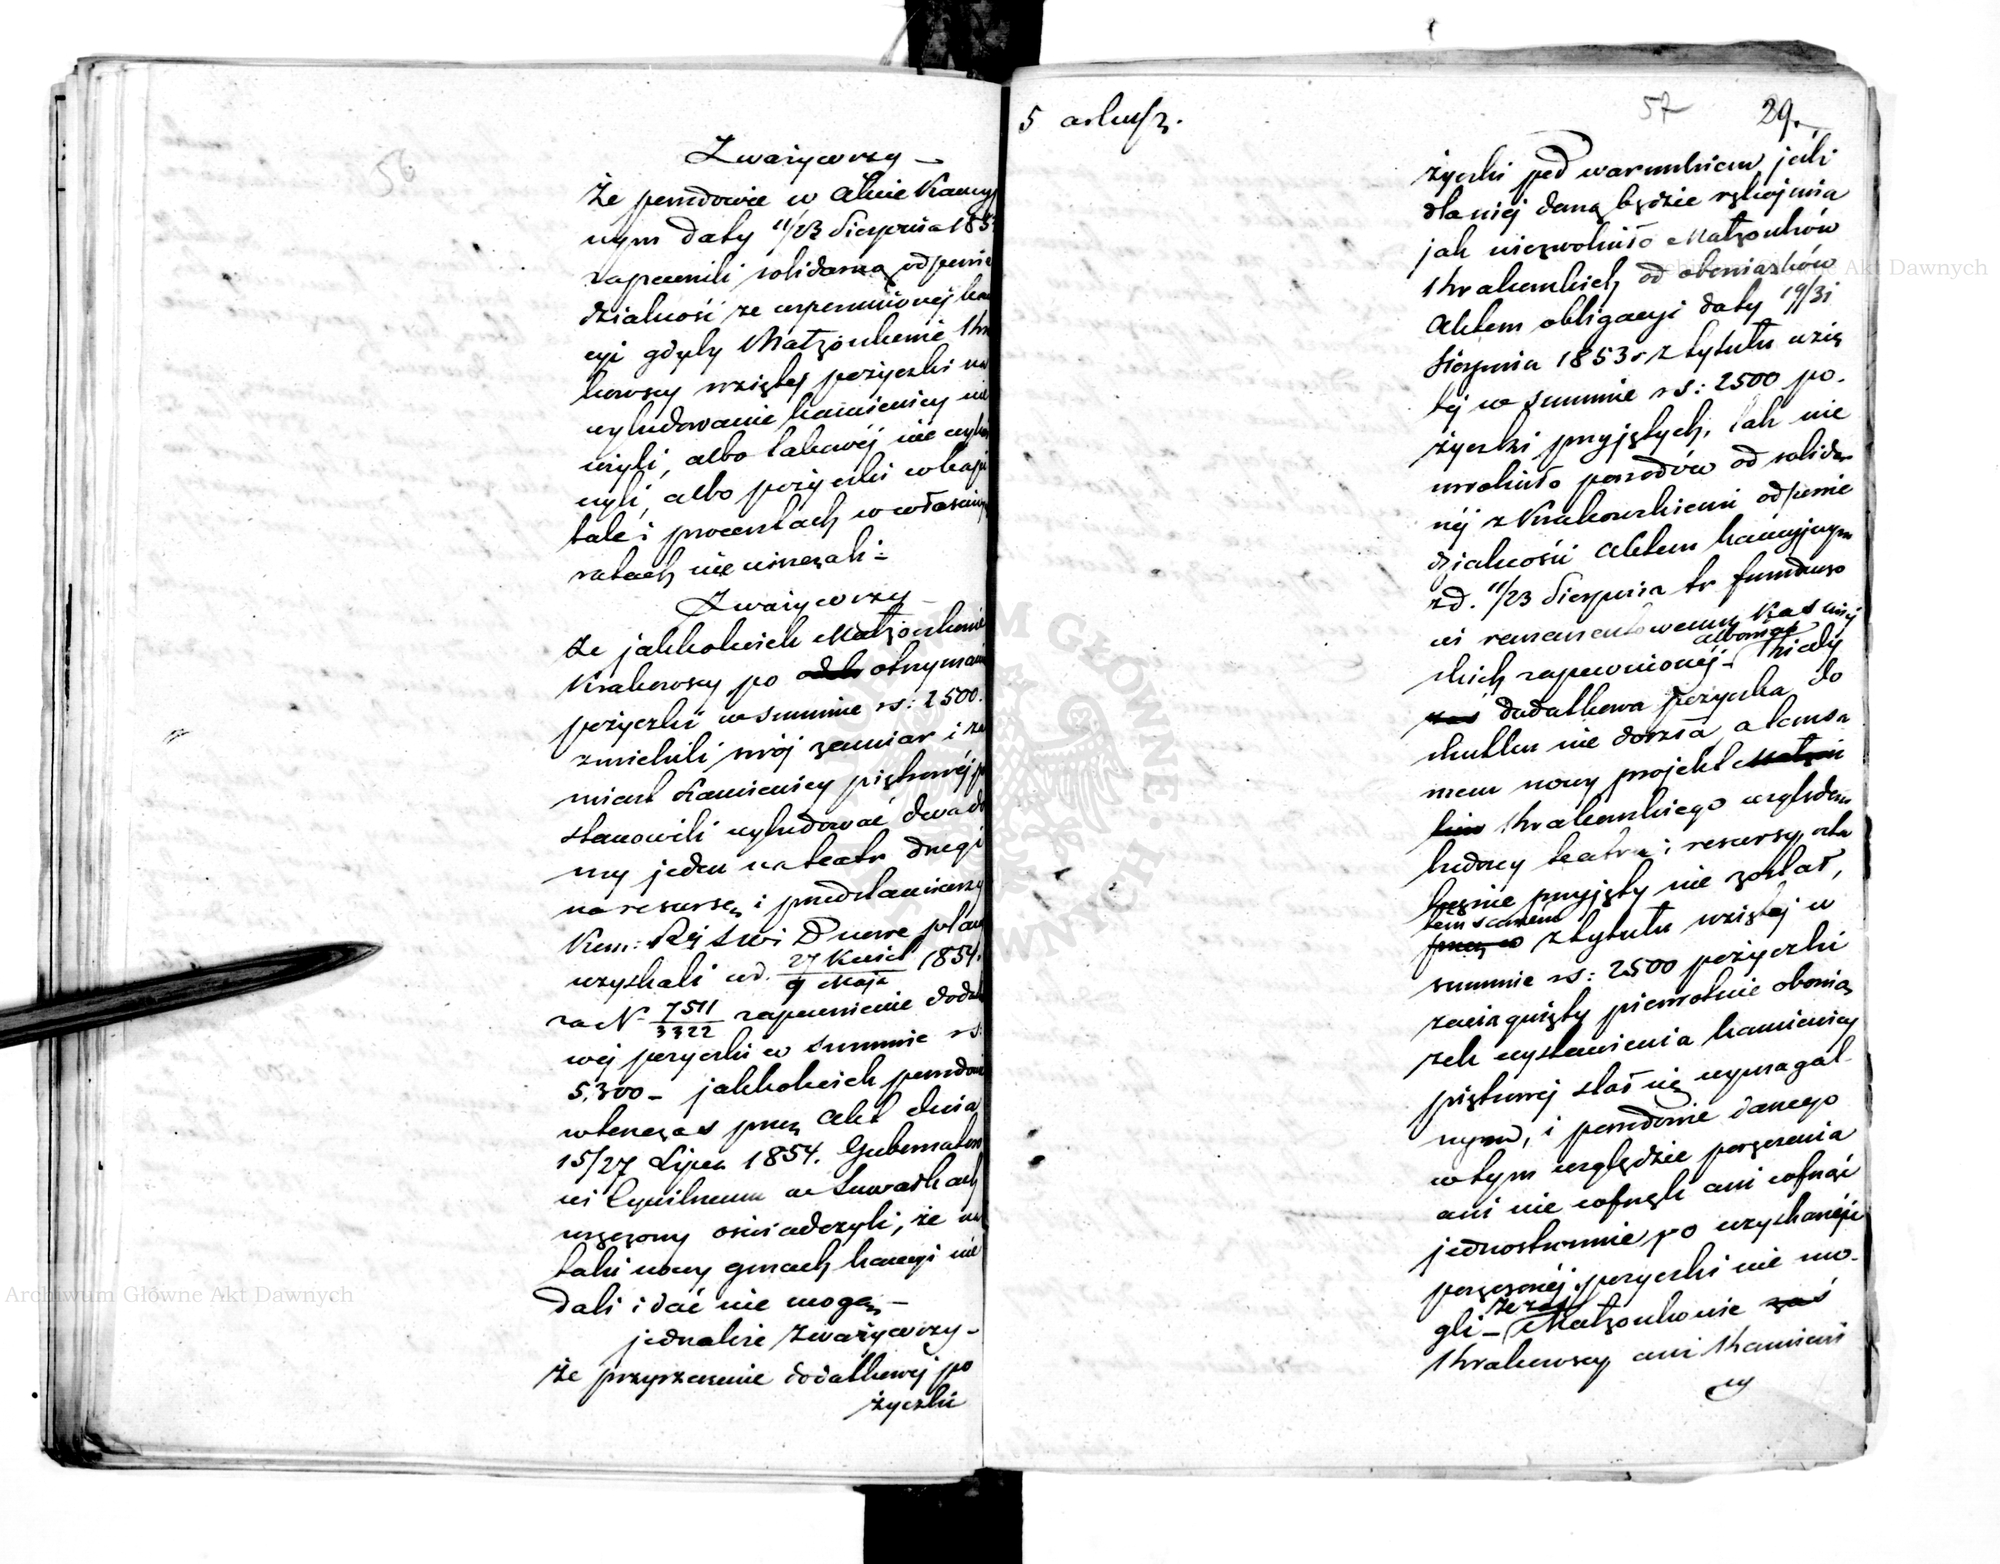 56
Zważywszy –
że pozwdowie w Akcie Kaucyj
nym daty 11/23 Sierpnia 185
zapewnili solidarną odpowie
dzialność ze wspomnionej kau
cyi gdyby Małżonkowie Kra
kowscy wziętej pożyczki na
wybudowanie kamienicy nie
użyli, albo takowéj nie wyko
czyli, albo pożyczki w kapi
tale i procentach w właściwych
ratach nie uiszczali –
Zważywszy –
że jakkolwiek Małżonkowie
Krakowscy po otrzymaniu
pożyczki w summie rs: 2500.
zmienili swój zamiar i za
miast Kamienicy piętrowéj po
stanowili wybudować dwa do
my jeden na teatr drugi
na resursę i przedstawiwszy
Kom: Rząd: Swi Duowe plany
uzyskali z d. 27 Kwiet / 9 Maja 1854.
za N. 7511/3322 zapewnienie dodat
wéj pożyczki w summie rs:
5.300 – jakkolwiek pozwdowie
wtenczas przez Akt dnia
15/27 Lipca 1854. Gubernatoro
wi Cywilnemu w Suwałkach
wręczony oświadczyli, że na
taki nowy gmach kaucyi nie
dali i dać nie mogą –
jednakże zważywszy –
że przyrzeczenie dodatkowej po
życzki
5 arkusz.
57 29.
życzki pod warunkiem jeśli
dla niéj daną będzie rękojmia
jak niezwolniło Małżonków
Krakowskich od obowiązków
Aktem obligacyi daty 19/31
Sierpnia 1853 r z tytułu wzię
tej w summie rs: 2500 po-
życzki przyjętych, tak nie
uwolniło pozwdów od solidar
néj z Krakowskiemi odpowie
dzialności Aktem kaucyjnym
z d. 11/23 Sierpnia t r funduszo
wi remanentowemu Kas miej
skich zapewnionéj – albowiem kiedy
zaś dodatkowa pożyczka do
skutku nie doszła, a tem sa
mem nowy projekt Małżon
ków Krakowskiego względem
budowy teatru i resursy, osta
tecznie przyjęty nie został,
tem samem
z tytułu wziętej w
summie rs: 2500 pożyczki
zaciągnięty pierwotnie obowią
zek wystawienia kamienicy
piętrowej stał się wymagal-
nym, i pozwdowie danego
w tym względzie poręczenia
ani nie cofnęli ani cofnąć
jednostronnie po uzyskanéj i
poręczonéj pożyczki nie mo-
gli – że zaś Małżonkowie zaś
Krakowscy ani Kamieni
cy
Archiwum Główne Akt Dawnych
Archiwum Główne Akt Dawnych
ARCHIWUM GŁÓWNE AKT DAWNYCH